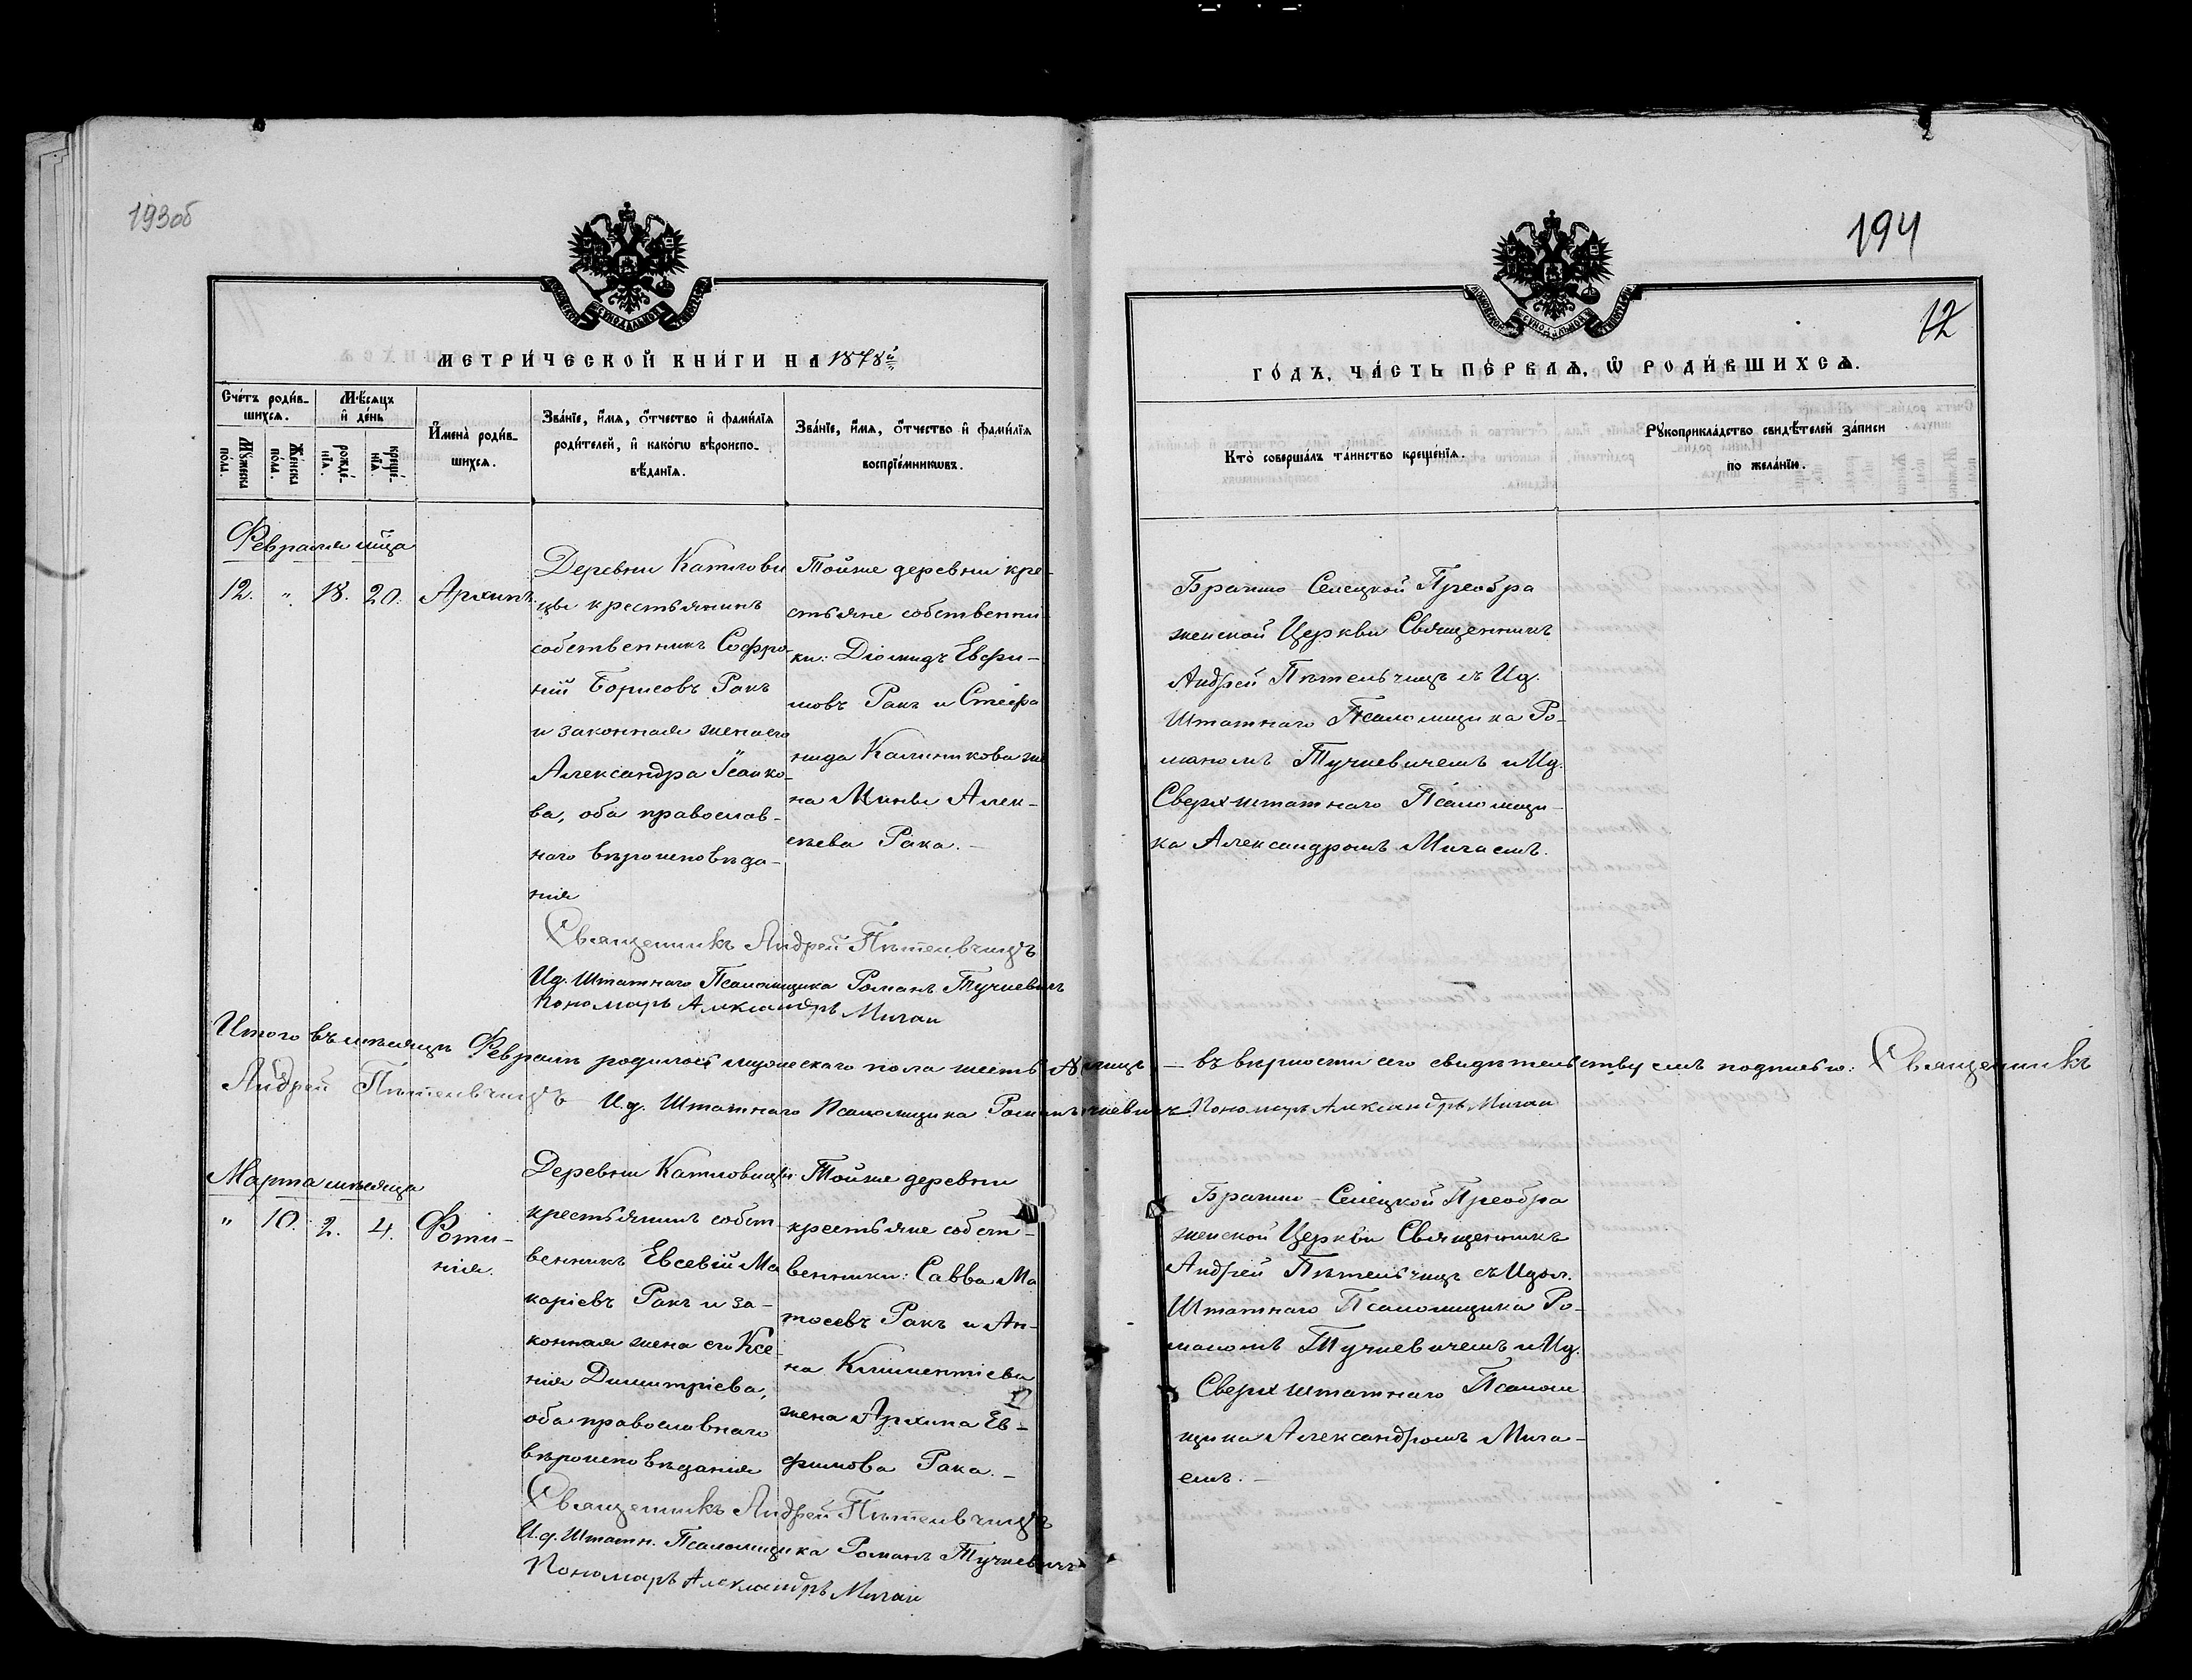 193об
194
12
МЕТРИ́ЧЕСКОЙ КНИ́ГИ НА 1878й
ГО́ДЪ, ЧА́СТЬ ПЕ́РВАѦ, Ѡ҆ РОДИ́ВШИХСѦ.
Сче́тъ роди́в-
шихсѧ.
Мѣ́сяцъ
и҆ де́нь
Му́жеска
по́ла.
Же́нска
по́ла.
рожде́-
нїѧ.
креще́-
нїѧ.
И҆мена̀ роди́в-
шихсѧ.
Зва́нїе, и҆́мѧ, о҆́тчество и҆ фами́лїѧ
роди́телей, и҆ како́гѡ вѣроиспо-
вѣ́данїѧ.
Зва́нїе, и҆́мѧ, о҆́тчество и҆ фами́лїѧ
воспрїе́мникѡвъ.
Кто̀ соверша́лъ та́инство креще́нїѧ.
Рꙋкоприкла́дство свидѣ́телей за́писи
по жела́нїю.
Февраля м͠ца
12. " 18. 20. Архипъ.
Деревни Катлови
цы крестьянинъ
собственникъ Софро-
ній Борисовъ Ракъ
и законная жена его
Александра Исаако-
ва, оба православ-
наго вѣроисповѣда-
нія
Тойже деревни кре-
стьяне собственни
ки: Діомидъ Евфи-
мовъ Ракъ и Стефа
нида Калиникова же
на Мины Алек-
сѣева Рака.-
Бранно Селецкой Преобра
женской Церкви Священникъ
Андрей Пѣтельчицъ съ Ид.
Штатнаго Псаломщика Ро-
маномъ Тучкевичемъ и Ид.
Сверхштатнаго Псаломщи-
ка Александромъ Мигаемъ.
Священникъ Андрей Пѣтельчицъ
Ид. Штатнаго Псаломщика Романъ Тучкевичъ
Пономарь Александръ Мигай
Итого въ мѣсяцѣ Февралѣ родилось мужескаго пола шесть - въ вѣрности сего свидѣтельствуемъ подписью: Священникъ
Андрей Пѣтельчицъ И.д. Штатнаго Псаломщика Романъ Тучкевичъ Пономарь Александръ Мигай
Марта мѣсяца
" 10. 2. 4. Фоти-
нія.
Деревни Катловицы
крестьянинъ собст-
венникъ Евсевій Ма
каріевъ Ракъ и за-
конная жена его Ксе-
нія Димитріева,
оба православнаго
вѣроисповѣданія
Тойже деревни
крестьяне собст-
венники: Савва Ма
тѳеевъ Ракъ и Ан-
на Климентіева
жена Архипа Ев-
фимова Рака.-
Бранно-Селецкой Преобра
женской Церкви Священникъ
Андрей Пѣтельчицъ съ Идол.
Штатнаго Псаломщика Ро-
маномъ Тучкевичемъ и Ид.
Сверхштатнаго Псалом
щика Александромъ Мига-
емъ.-
Священникъ Андрей Пѣтельчицъ
И.д. Штатн. Псаломщика Романъ Тучкевичъ
Пономарь Александръ Мигай